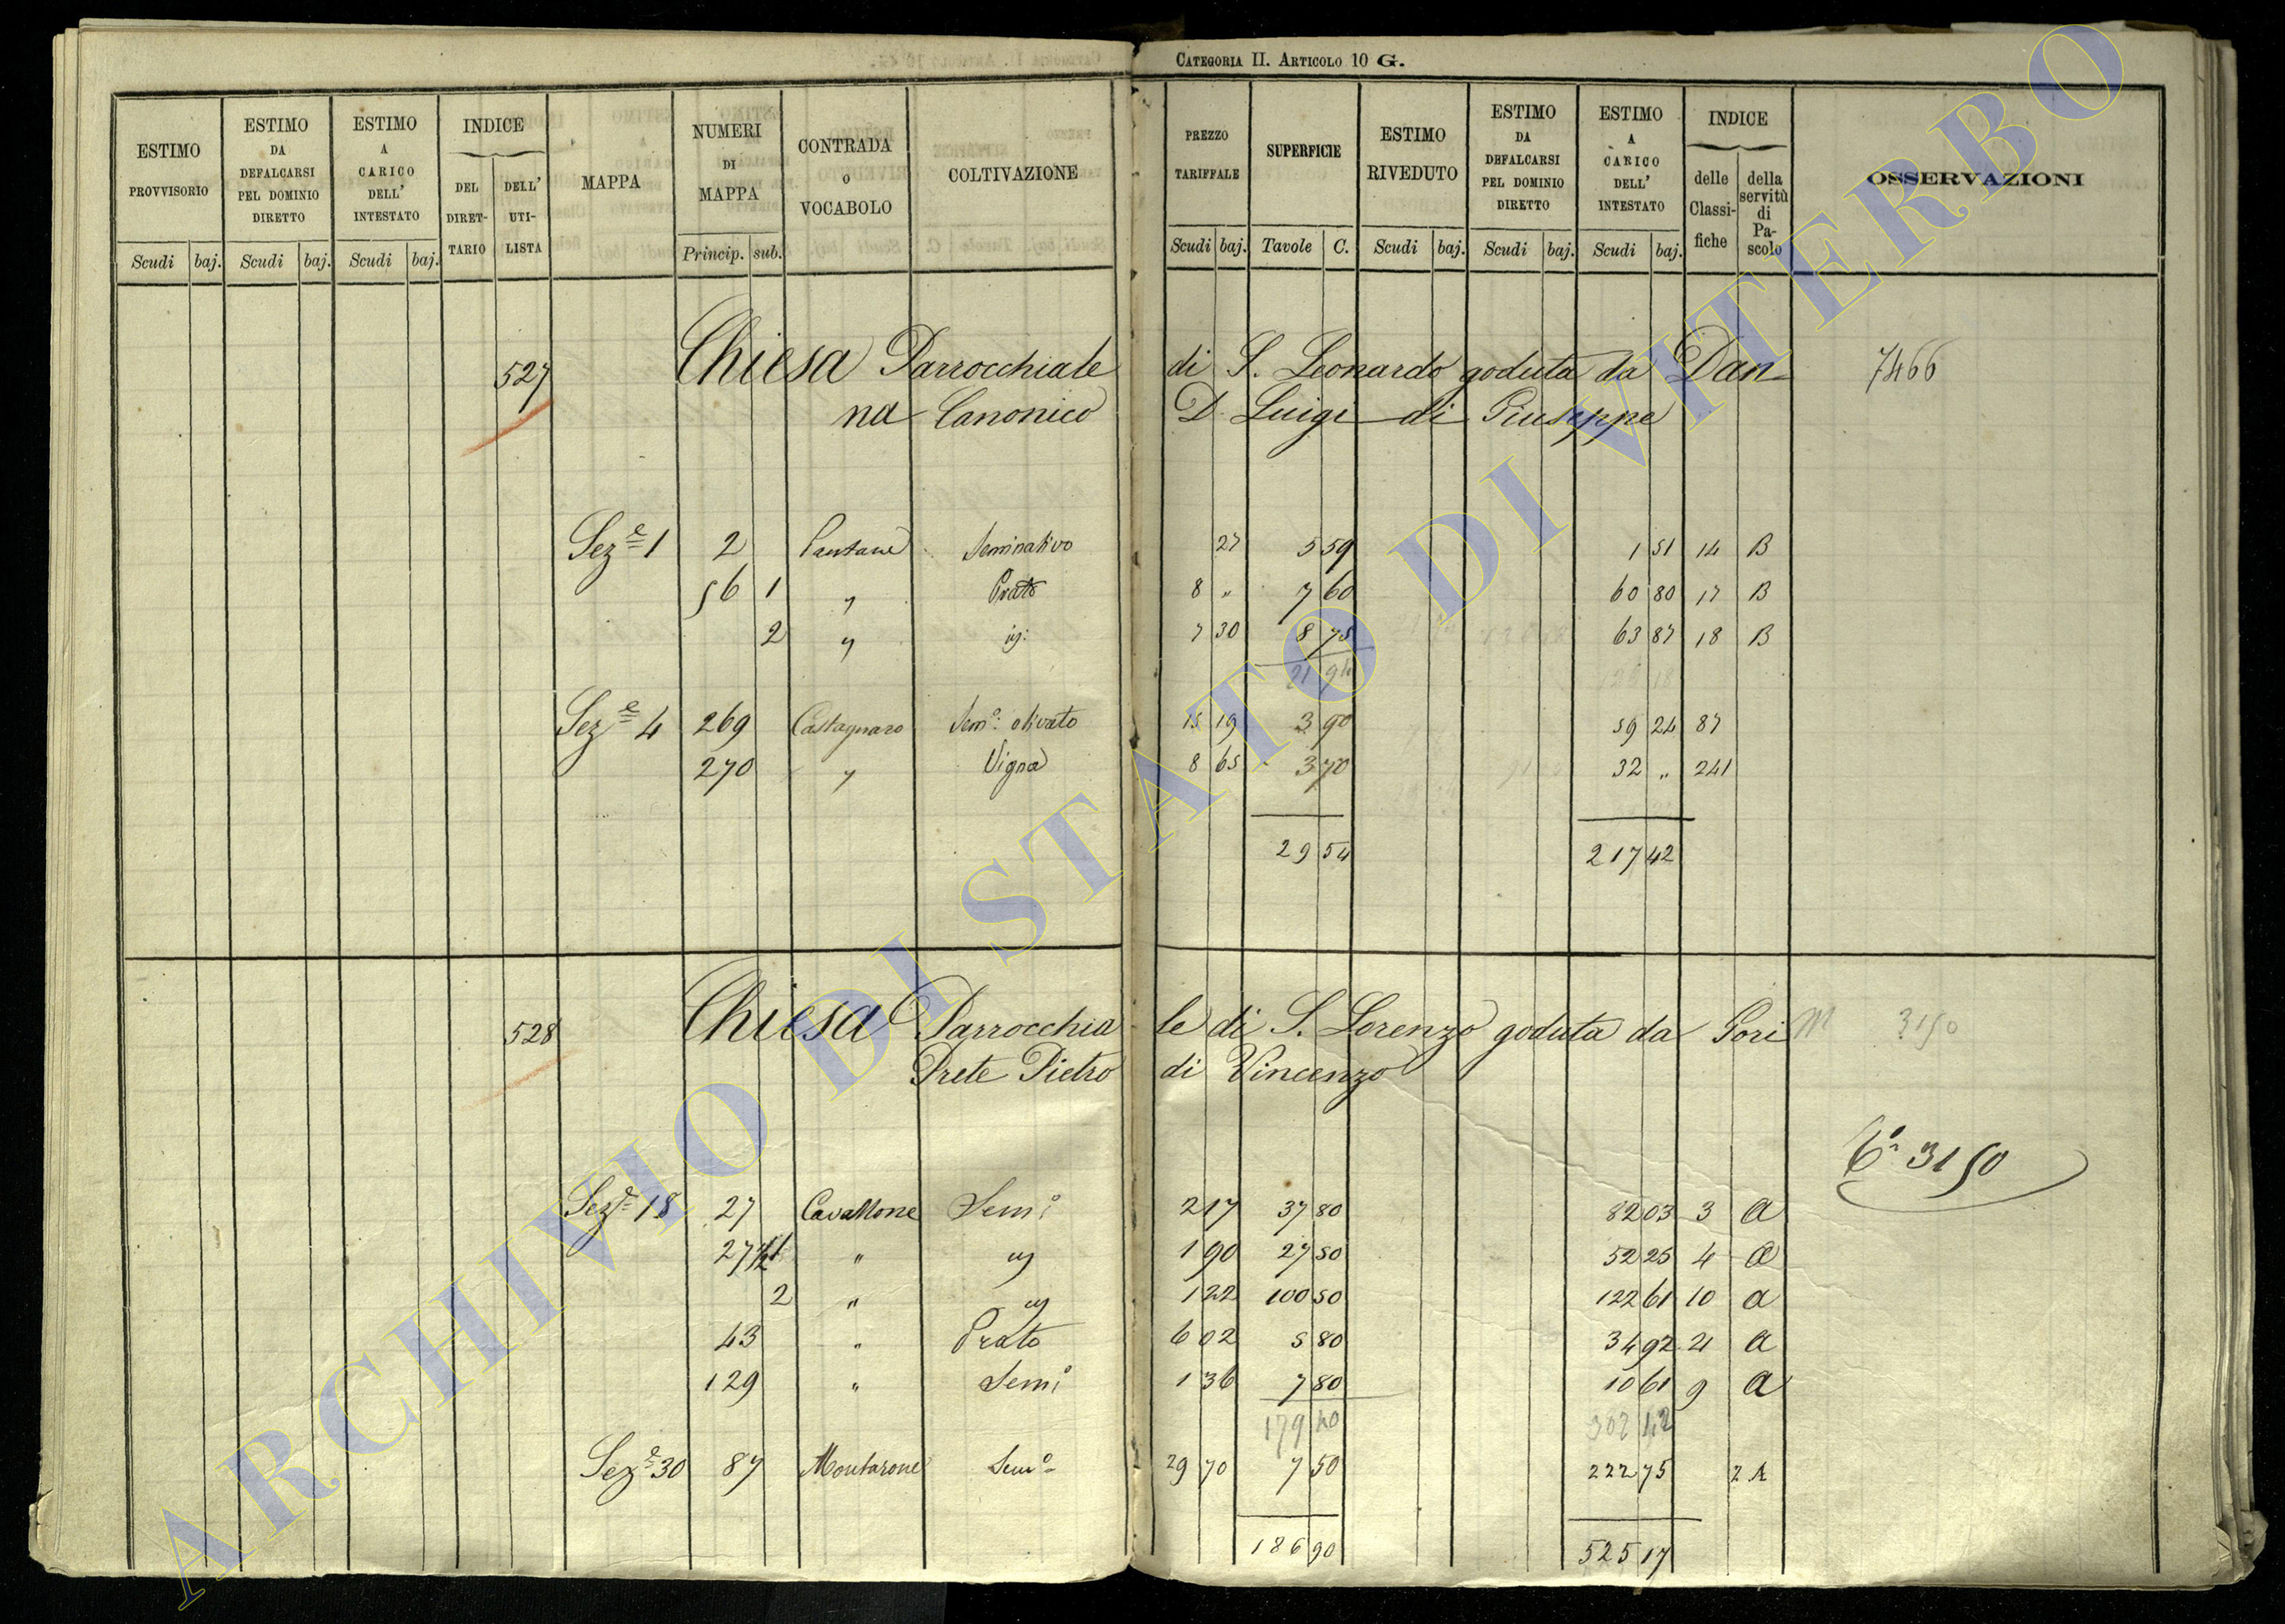 CATEGORIA II. ARTICOLO 10 G.
ESTIMO PROVVISORIO
ESTIMO DA DEFALCARSI PEL DOMINIO DIRETTO
ESTIMO A CARICO DELL' INTESTATO
INDICE
DEL DIRET- TARIO
DELL' UTI- LISTA
MAPPA
NUMERI DI MAPPA
CONTRADA O VOCABOLO
COLTIVAZIONE
PREZZO TARIFFALE
SUPERFICIE
ESTIMO RIVEDUTO
ESTIMO DA DEFALCARSI PEL DOMINIO DIRETTO
ESTIMO A CARICO DELL' INTESTATO
INDICE
delle Classi- fiche
della servitù di Pa- scolo
OSSERVAZIONI
Scudi baj. Scudi baj. Scudi baj. Princip. sub. Scudi baj. Tavole C. Scudi baj. Scudi baj. Scudi baj.
527 Chiesa Parrocchiale di S. Leonardo goduta da Dan- 7466
na Canonico D. Luigi di Giuseppe
Sez.e 1 2 Pantane Seminativo 27 5 59 1 51 14 B
56 1 " Prato 8 " 7 60 60 80 17 B
2 " id: 7 30 8 75 63 87 18 B
21 94
Sez.e 4 269 Castagnaro Sem.o olivato 15 19 3 90 59 24 87
270 " Vigna 8 65 3 70 32 " 241
29 54 217 42
528 Chiesa Parrocchia le di S. Lorenzo goduta da Gori M 3150
Prete Pietro di Vincenzo
C.o 3150
Sez.e 18 27 Cavallone Sem.o 2 17 37 80 82 03 3 A
27 1/2 1 " id 1 90 27 50 52 25 4 A
2 " id 1 22 100 50 122 61 10 A
43 " Prato 6 02 5 80 34 92 21 A
129 " Sem.o 1 36 7 80 10 61 9 A
179 40 302 42
Sez.e 30 87 Montarone Sem.o 29 70 7 50 222 75 2 A
186 90 525 17
ARCHIVIO DI STATO DI VITERBO